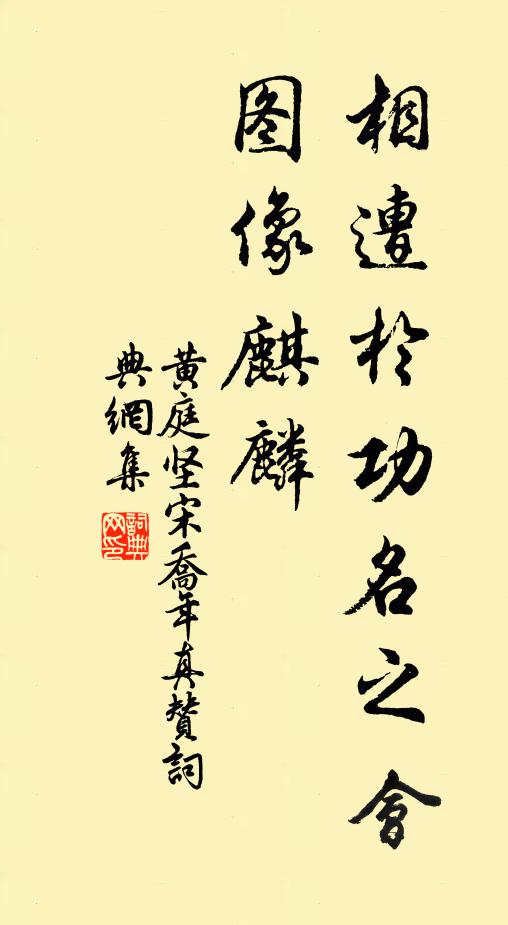 相遭於功名之會
图像麒麟
黄庭坚宋喬年真贊詞
典網集
詞典
网印